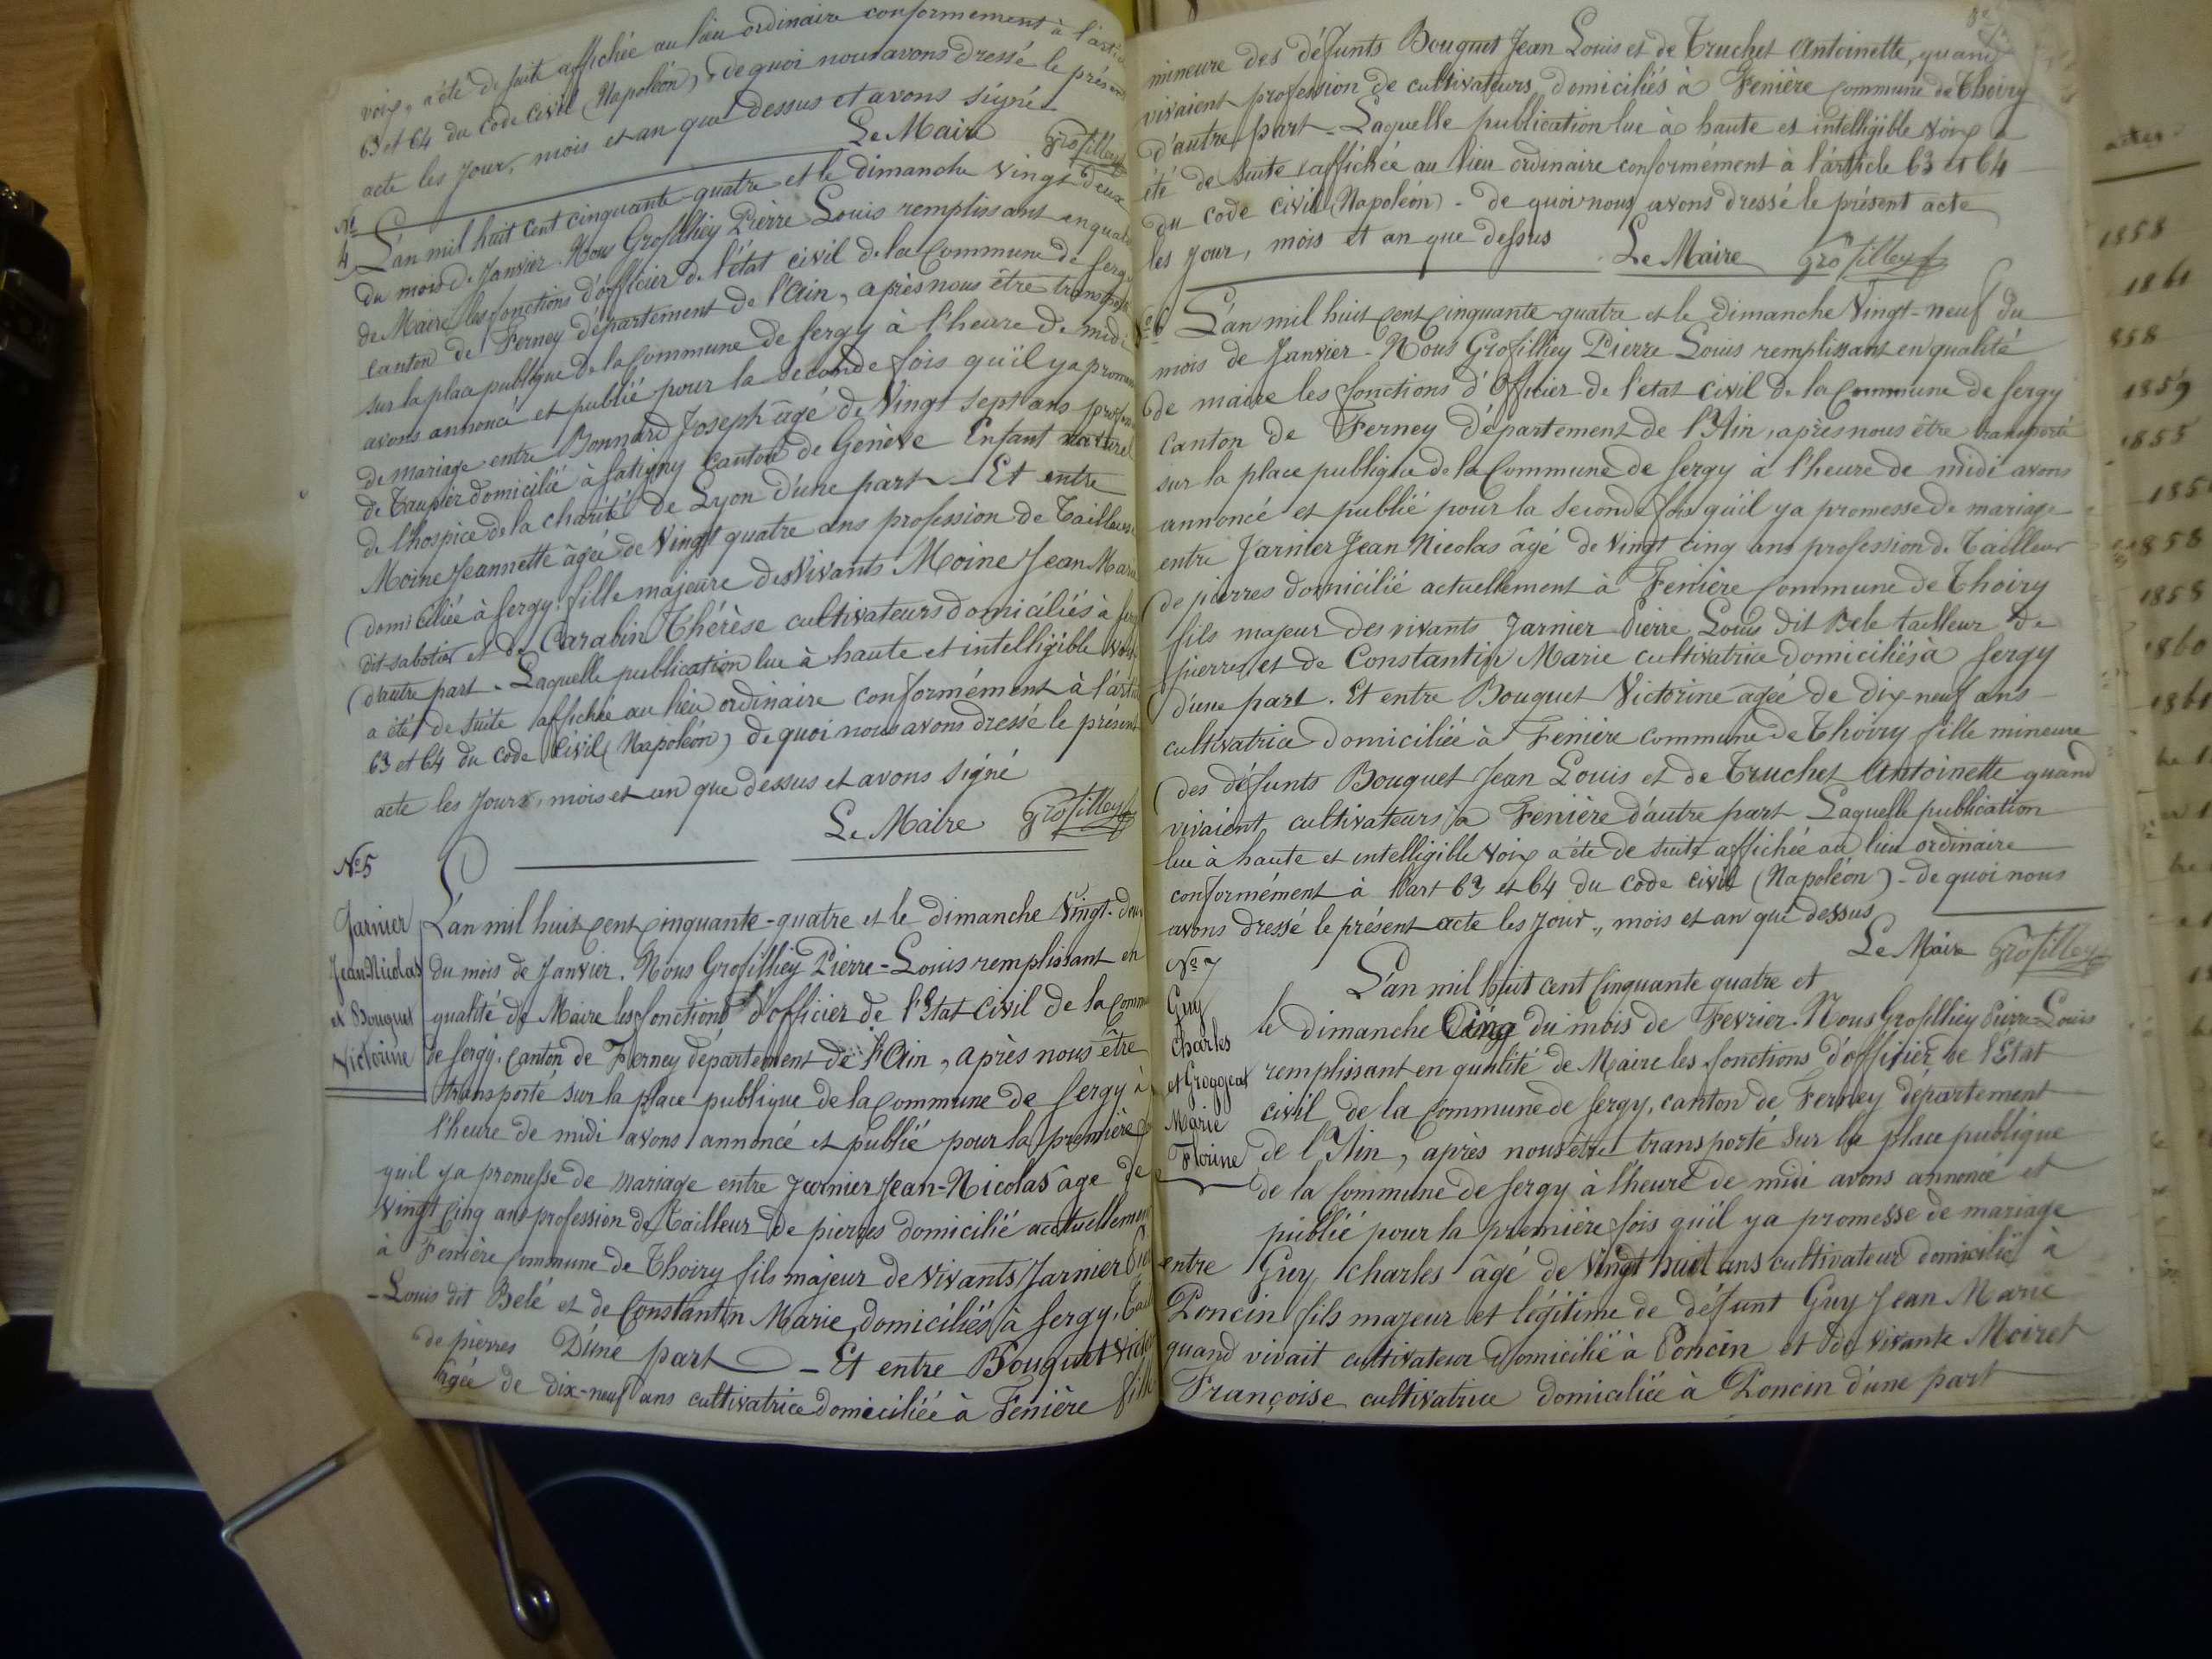 voix, a été de suite affichée au lieu ordinaire conformement à l'art
63 et 64 du code civil (Napoléon), de quoi nous avons dressé le présent
acte les jour, mois et an que dessus et avons signé
Le Maire Grosfilley
No
4 L'an mil huit cent cinquante-quatre et le dimanche vingt deux
du mois de Janvier. Nous Grosfilliey Pierre Louis remplissant en qualité
de Maire les fonctions d'officier de l'état civil de la Commune de Sergy
canton de Ferney département de l'Ain, après nous être transporté
sur la place publique de la Commune de Sergy à l'heure de midi
avons annoncé et publié pour la seconde fois qu'il y a promesse
de mariage entre Bonnard Joseph âgé de Vingt sept ans profession
de Taupier domicilié à Satigny canton de Genève Enfant naturel
de l'hospice de la charité de Lyon d'une part - Et entre
Moine Jeannette âgée de Vingt quatre ans profession de Tailleuse
domiciliée à Sergy fille majeure des Vivants Moine Jean Marie
dit sabotier et de Carabin Thérèse cultivateurs domiciliés à Sergy
d'autre part. Laquelle publication lue à haute et intelligible Voix
a été de suite affichée au lieu ordinaire conformément à l'article
63 et 64 du code civil (Napoléon) de quoi nous avons dressé le présent
acte les Jours, mois et an que dessus et avons signé
Le Maire Grosfilley
No 5
Jarnier
Jean-Nicolas
et Bouquet
Victorine
L'an mil huit cent cinquante-quatre et le dimanche Vingt-deux
du mois de Janvier. Nous Grosfilliey Pierre-Louis remplissant en
qualité de Maire les fonctions d'officier de l'Etat Civil de la Comm
de Sergy, canton de Ferney département de l'Ain, après nous être
transporté sur la place publique de la Commune de Sergy à
l'heure de midi avons annoncé et publié pour la première
qu'il y a promesse de mariage entre Jarnier Jean-Nicolas âgé de
Vingt cinq ans profession de Tailleur de pierres domicilié actuellement
à Fenière Commune de Thoiry fils majeur de vivants Jarnier Pier
-Louis dit Belé et de Constantin Marie, domiciliés à Sergy, Tail
de pierres D'une part - Et entre Bouquet Victo
âgée de dix-neuf ans cultivatrice domiciliée à Fenière fille
mineure des défunts Bouquet Jean Louis et de Truchet Antoinette, quand
vivaient profession de cultivateurs domiciliés à Fenière Commune de Thoiry
d'autre part - Laquelle publication lue à haute et intelligible voix a
été de suite affichée au lieu ordinaire conformément à l'article 63 et 64
du code civil (Napoléon) - de quoi nous avons dressé le présent acte
les jour, mois et an que dessus Le Maire Grosfilley
6 L'an mil huit cent cinquante-quatre et le dimanche Vingt-neuf du
mois de Janvier - Nous Grosfilliey Pierre Louis remplissant en qualité
de maire les fonctions d'Officier de l'etat civil de la Commune de Sergy
Canton de Ferney département de l'Ain, après nous être transporté
sur la place publique de la Commune de Sergy à l'heure de midi avons
annoncé et publié pour la Seconde fois qu'il y a promesse de mariage
entre Jarnier Jean Nicolas âgé de Vingt cinq ans profession de Tailleur
de pierres domicilié actuellement à Fenière Commune de Thoiry
fils majeur des vivants Jarnier Pierre Louis dit Bele tailleur de
pierres et de Constantin Marie cultivatrice domiciliés à Sergy
d'une part. Et entre Bouquet Victorine âgée de dix-neuf ans
cultivatrice domiciliée à Fenière commune de Thoiry fille mineure
des défunts Bouquet Jean Louis et de Truchet Antoinette quand
vivaient cultivateurs a Fenière d'autre part Laquelle publication
lue à haute et intelligible Voix a été de suite affichée au lieu ordinaire
conformément à l'art 63 et 64 du code civil (Napoléon) - de quoi nous
avons dressé le présent acte les jour, mois et an que dessus
Le Maire Grosfilley
No 7
Guy
Charles
et Groggeat
Marie
Florine
L'an mil huit cent Cinquante quatre et
le dimanche Cinq du mois de Fevrier. Nous Grosfilliey Pierre-Louis
remplissant en qualité de Maire les fonctions d'officier de l'Etat
civil de la Commune de Sergy, canton de Ferney département
de l'Ain, après nous être transporté sur la place publique
de la Commune de Sergy à l'heure de midi avons annoncé et
publié pour la première fois qu'il y a promesse de mariage
entre Guy Charles âgé de Vingt huit ans cultivateur domicilié à
Poncin fils majeur et légitime de défunt Guy Jean Marie
quand vivait cultivateur domicilié à Poncin et de vivante Moiret
Françoise cultivatrice domiciliée à Poncin d'une part
1858
1861
858
1859
1855
185
1858
1858
1860
1861